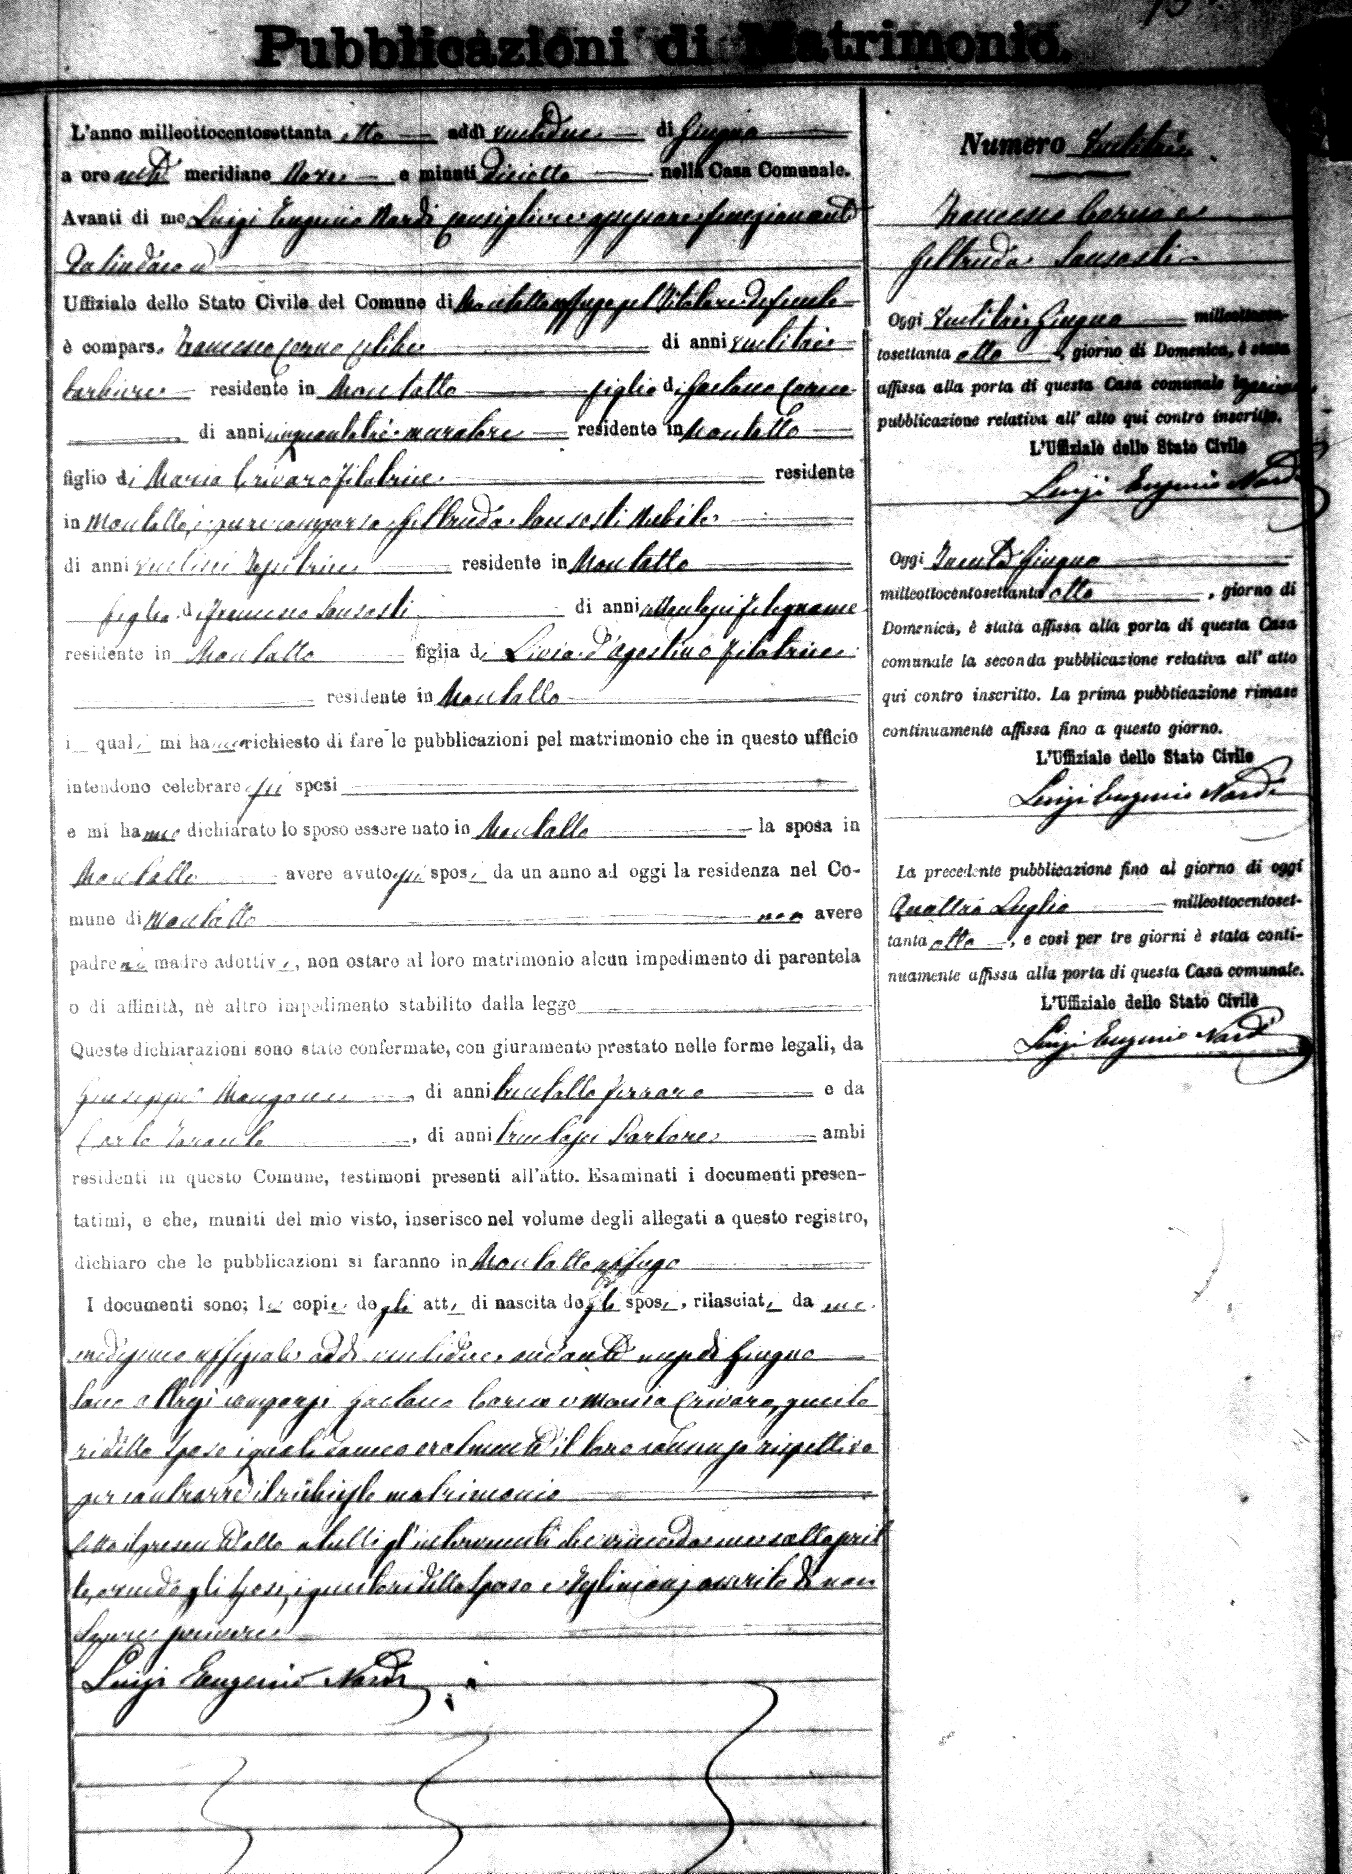 Pubblicazioni di Matrimonio.
L'anno milleottocentosettanta otto addì ventidue di Giugno
a ore anti meridiane Nove e minuti diciotto nella Casa Comunale.
Avanti di me Luigi Eugenio Nardi Consigliere funzionante
da Sindaco
Uffiziale dello Stato Civile del Comune di Montalto Uffugo pel Titolare
è compars. Francesco Corno celibe di anni ventitre
barbiere residente in Montalto figlio di Gaetano Corno
di anni cinquantatre muratore residente in Montalto
figlio di Maria Crivaro filatrice residente
in Montalto, e pure comparsa Geltruda Sansosti Nubile
di anni residente in Montalto
figlia di Francesco Sansosti di anni Falegname
residente in Montalto figlia di Livia d'Agostino filatrice
residente in Montalto
i quali mi hanno richiesto di fare le pubblicazioni pel matrimonio che in questo ufficio
intendono celebrare gli sposi
e mi hanno dichiarato lo sposo essere nato in Montalto la sposa in
Montalto avere avuto gli sposi da un anno ad oggi la residenza nel Co-
mune di Montalto non avere
padre nè madre adottivi, non ostare al loro matrimonio alcun impedimento di parentela
o di affinità, nè altro impedimento stabilito dalla legge
Queste dichiarazioni sono state confermate, con giuramento prestato nelle forme legali, da
Giuseppe Mangone, di anni trentotto ferraro e da
Carlo, di anni trentasei Sartore ambi
residenti in questo Comune, testimoni presenti all'atto. Esaminati i documenti presen-
tatimi, e che, muniti del mio visto, inserisco nel volume degli allegati a questo registro,
dichiaro che le pubblicazioni si faranno in Montalto Uffugo
I documenti sono; le copie degli atti di nascita degli sposi, rilasciate da me
medesimo uffiziale addì ventidue andante mese di Giugno
Sono comparsi Gaetano Corno e Maria Crivaro, genito
ri dello sposo i quali danno oralmente il loro rispettivo
per contrarre il richiesto matrimonio
Letto il presente atto a tutti gl'intervenuti
gli sposi, i genitori dello sposo e testimoni asserito di non
sapere
Luigi Eugenio Nardi
Numero Ventitrè
Francesco Corno e
Geltruda Sansosti
Oggi Ventitrè Giugno milleottocen-
tosettanta otto, giorno di Domenica, è stata
affissa alla porta di questa Casa comunale la prima
pubblicazione relativa all'atto qui contro inscritto.
L'Uffiziale dello Stato Civile
Luigi Eugenio Nardi
Oggi Trenta Giugno
milleottocentosettanta otto, giorno di
Domenica, è stata affissa alla porta di questa Casa
comunale la seconda pubblicazione relativa all'atto
qui contro inscritto. La prima pubblicazione rimase
continuamente affissa fino a questo giorno.
L'Uffiziale dello Stato Civile
Luigi Eugenio Nardi
La precedente pubblicazione fino al giorno di oggi
Quattro Luglio milleottocentoset-
tanta otto, e così per tre giorni è stata conti-
nuamente affissa alla porta di questa Casa comunale.
L'Uffiziale dello Stato Civile
Luigi Eugenio Nardi